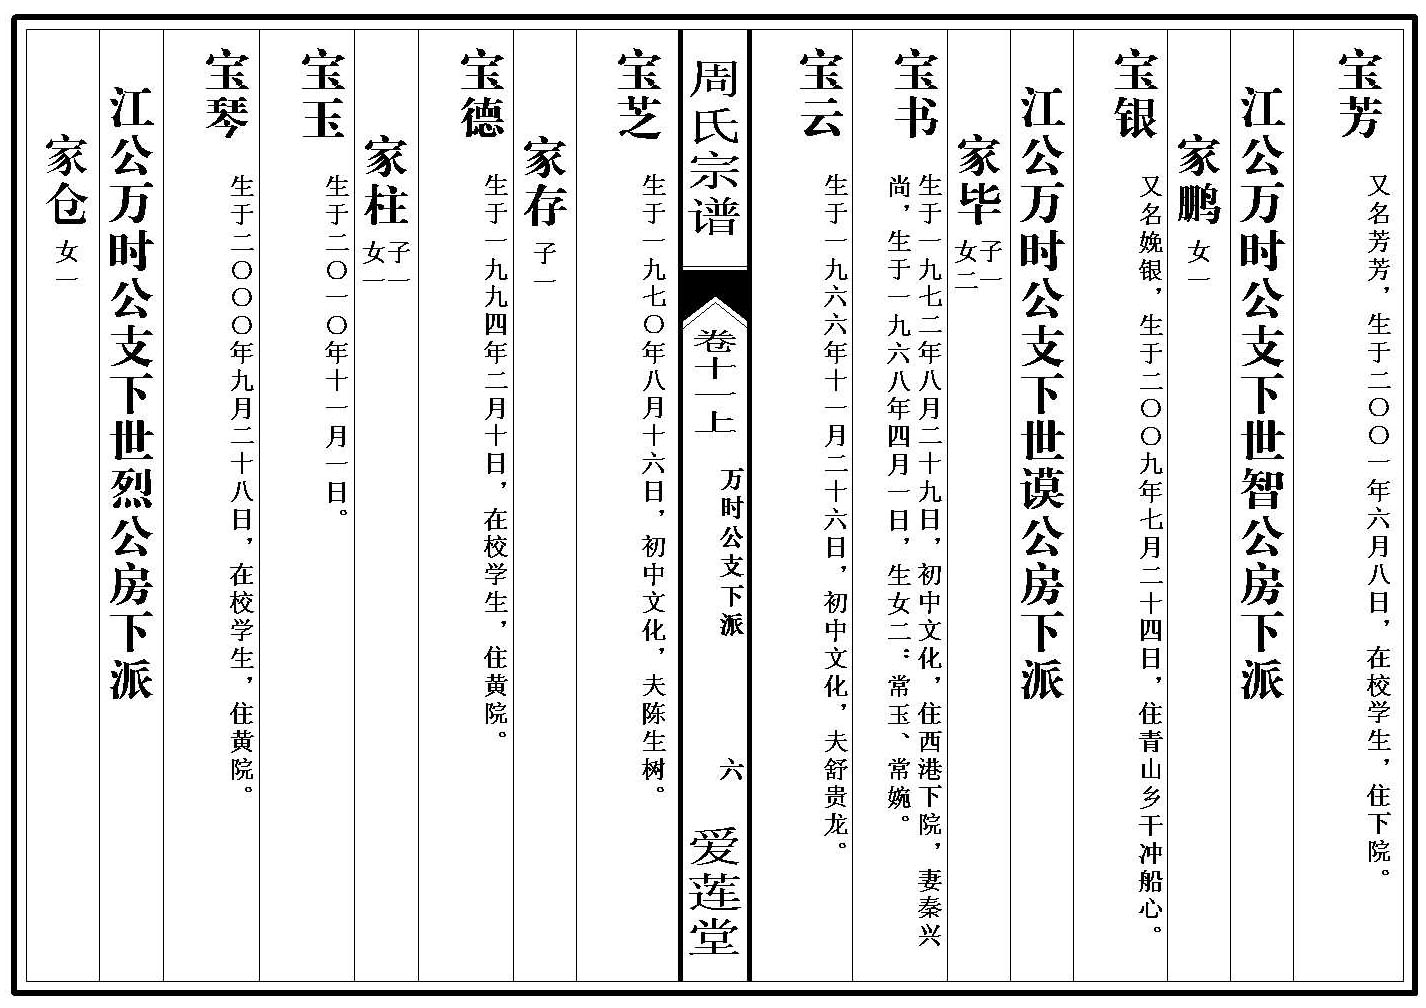 宝芳
又名芳芳，生于二〇〇一年六月八日，在校学生，住下院。
江公万时公支下世智公房下派
家鹏
女一
宝银
又名娩银，生于二〇〇九年七月二十四日，住青山乡干冲船心。
江公万时公支下世谟公房下派
家毕
子一
女二
宝书
生于一九七二年八月二十九日，初中文化，住西港下院，妻秦兴
尚，生于一九六八年四月一日，生女二：常玉、常婉。
宝云
生于一九六六年十一月二十六日，初中文化，夫舒贵龙。
周氏宗谱
卷十一上
万时公支下派
六
爱莲堂
宝芝
生于一九七〇年八月十六日，初中文化，夫陈生树。
家存
子一
宝德
生于一九九四年二月十日，在校学生，住黄院。
家柱
子一
女一
宝玉
生于二〇一〇年十一月一日。
宝琴
生于二〇〇〇年九月二十八日，在校学生，住黄院。
江公万时公支下世烈公房下派
家仓
女一